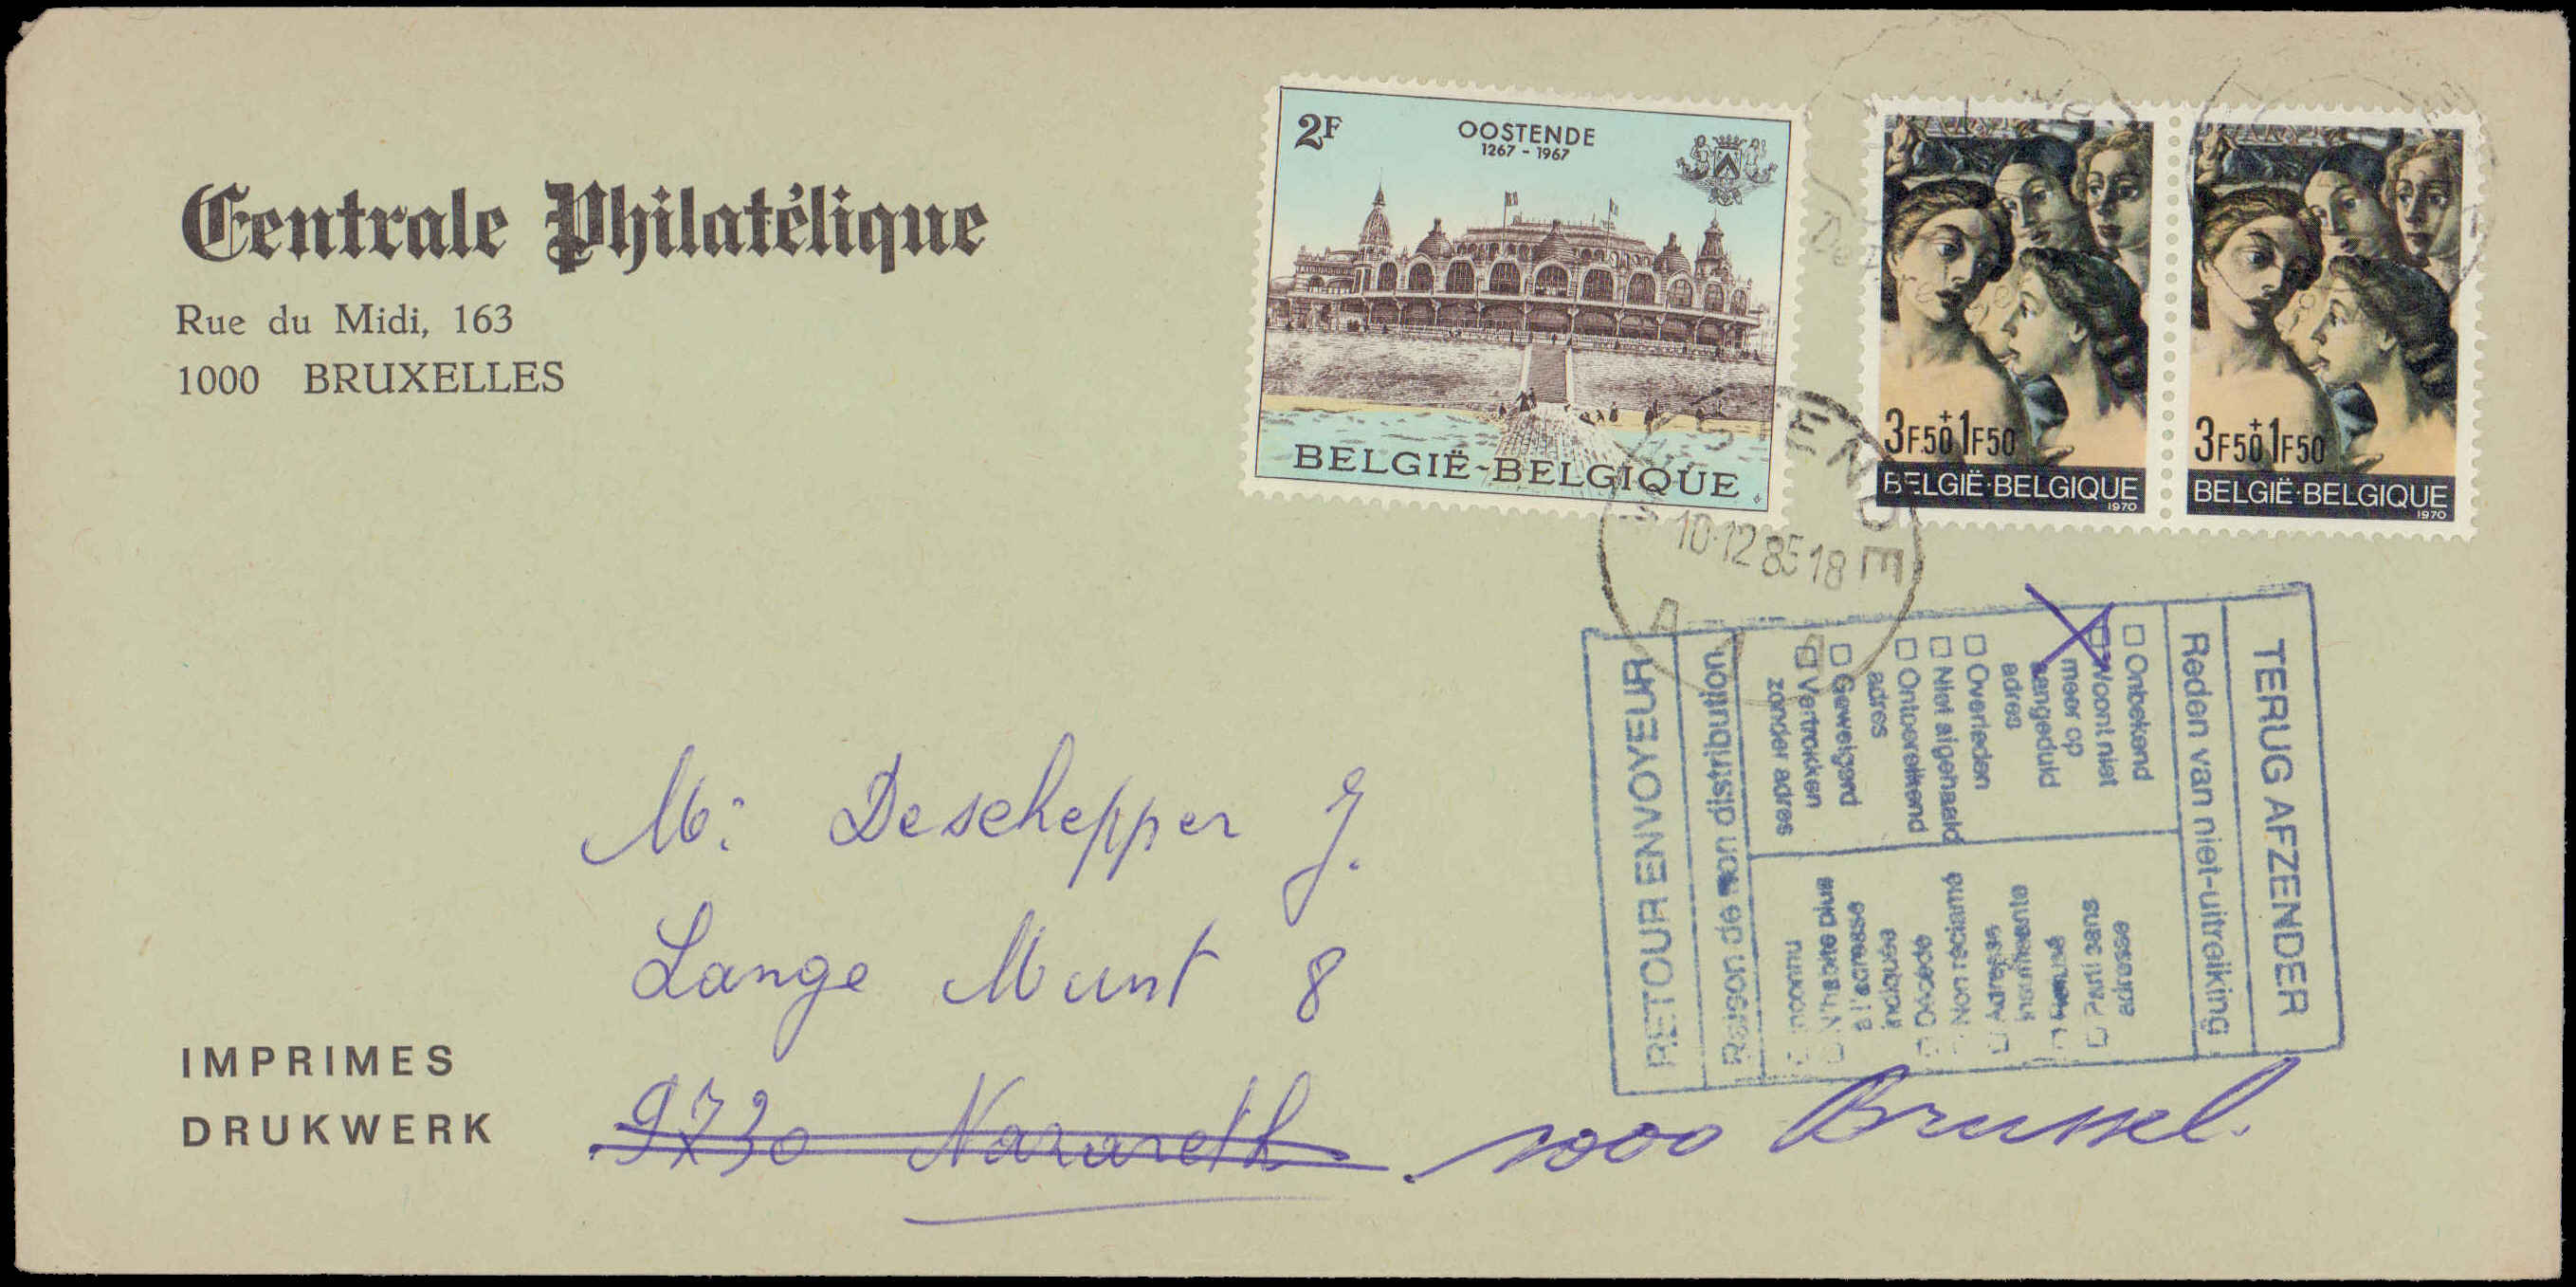 Centrale Philatélique
Rue du Midi, 163
1000 BRUXELLES
2F
OOSTENDE
1267 - 1967
BELGIË-BELGIQUE
3F50+1F50
BELGIË·BELGIQUE
1970
3F50+1F50
BELGIË·BELGIQUE
1970
10-12 85 18
A A
TERUG AFZENDER
Reden van niet-uitreiking
Onbekend
Woont niet
meer op
aangeduid
adres
Overleden
Niet afgehaald
Ontoereikend
adres
Geweigerd
Vertrokken
zonder adres
Inconnu
N'habite plus
à l'adresse
indiquée
Décédé
Non réclamé
Adresse
insuffisante
Refusé
Parti sans
adresse
Raison de non distribution
RETOUR ENVOYEUR
Mr Deschepper J.
Lange Munt 8
9730 Nazareth 1000 Brussel.
IMPRIMES
DRUKWERK